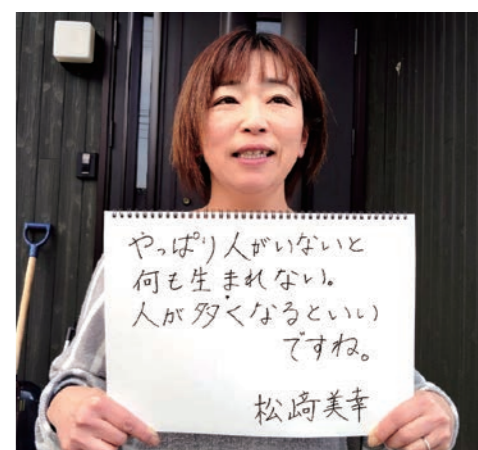 やっぱり人がいないと
何も生まれない。
人が多くなるといい
ですね。
松﨑美幸